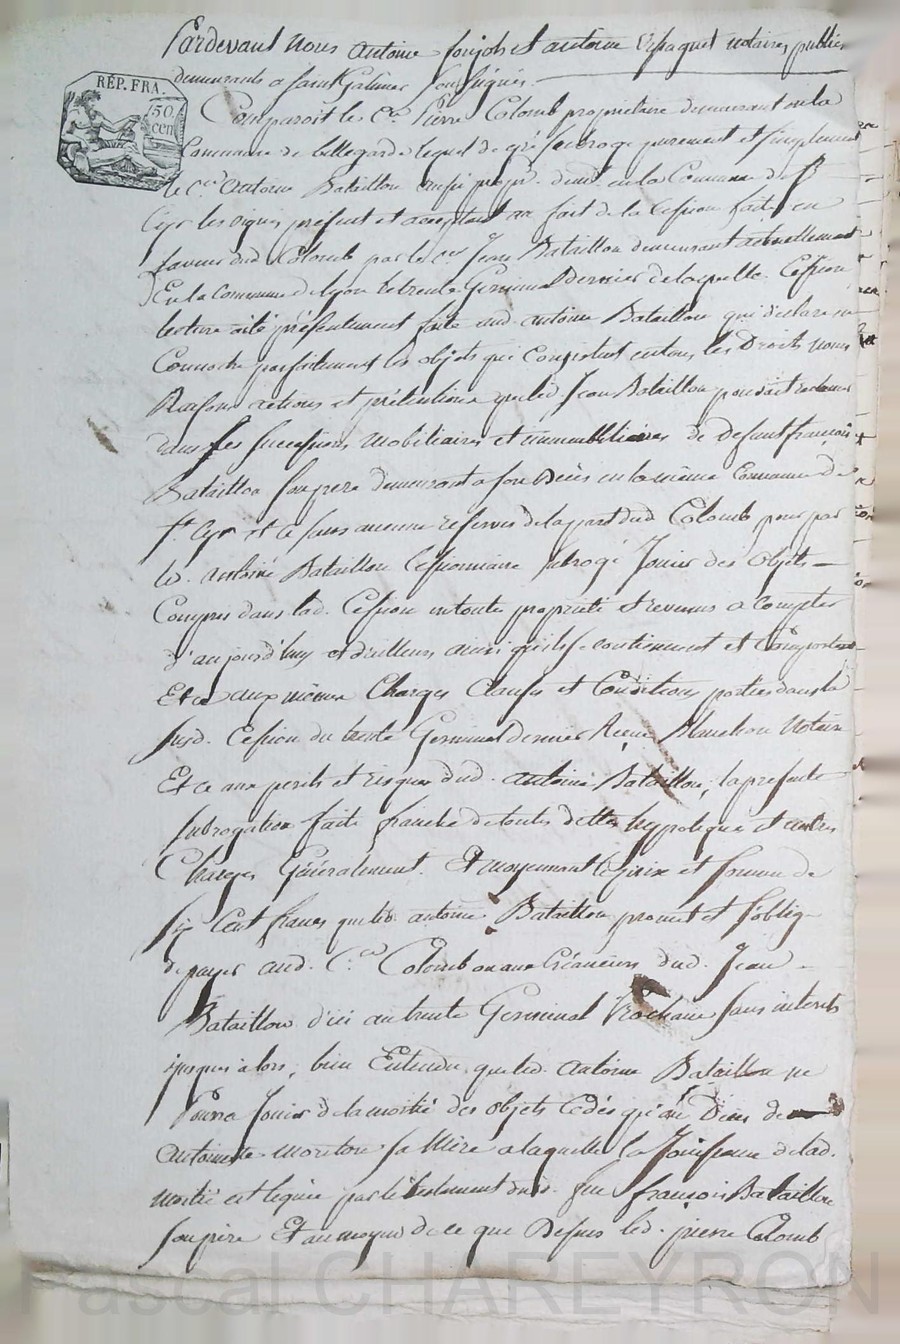 Pardevant nous antoine et antoine notaires publics
demeurants a saint Galmier soussignés.
RÉP. FRA.
50 cen
Comparoit le C.en Pierre Colomb propriétaire demeurant en la
Commune de bellegarde lequel de gré subroge purement et simplement
le C.en antoine Bataillon aussi propr. dem.t en la Commune de S.t
Cyr les vignes présent et acceptant au fait de la Cession faite en
faveur dud. Colomb par le C.en Jean Bataillon demeurant actuellement
En la commune de lyon le trente Germinal dernier de laquelle Cession
lecture a été présentement faite aud. antoine Bataillon qui déclare en
Connoitre parfaitement les objets qui Consistent en tous les Droits noms
Raisons actions et prétentions que led. Jean Bataillon pouvait
dans les successions mobiliaires et immobiliaires de defunt françois
Bataillon son père demeurant a son Décès en la même Commune de
S.t Cyr et ce sans aucune reserves de la part dud. Colomb pour par
led. antoine Bataillon Cessionnaire subrogé Jouir des objets
Compris dans lad. Cession en toute propriété et revenus a compter
d'aujourd'huy et d'ailleurs ainsi qu'ils se contiennent et Comportent
Et ce aux mêmes Charges Clauses et Conditions portées dans la
susd. Cession du trente Germinal dernier Reçue notaire
Et ce aux perils et risques dud. antoine Bataillon, la presente
subrogation faite franche de toutes dettes hypoteques et autres
Charges Généralement. Et moyennant le prix et somme de
six Cent francs que led. antoine Bataillon promet et s'oblige
de payer aud. C.en Colomb ou aux Créanciers dud. Jean
Bataillon d'ici au trente Germinal Prochain sans intérêts
jusques à lors; bien Entendu que led. antoine Bataillon ne
Pourra Jouir de la moitié des objets Cédés qu'au Décès de
antoinette sa Mère a laquelle la Jouissance de lad.
moitié est léguée par le testament dud. feu françois Bataillon
son père Et au moyen de ce que Dessus led. pierre Colomb
Pascal CHAREYRON